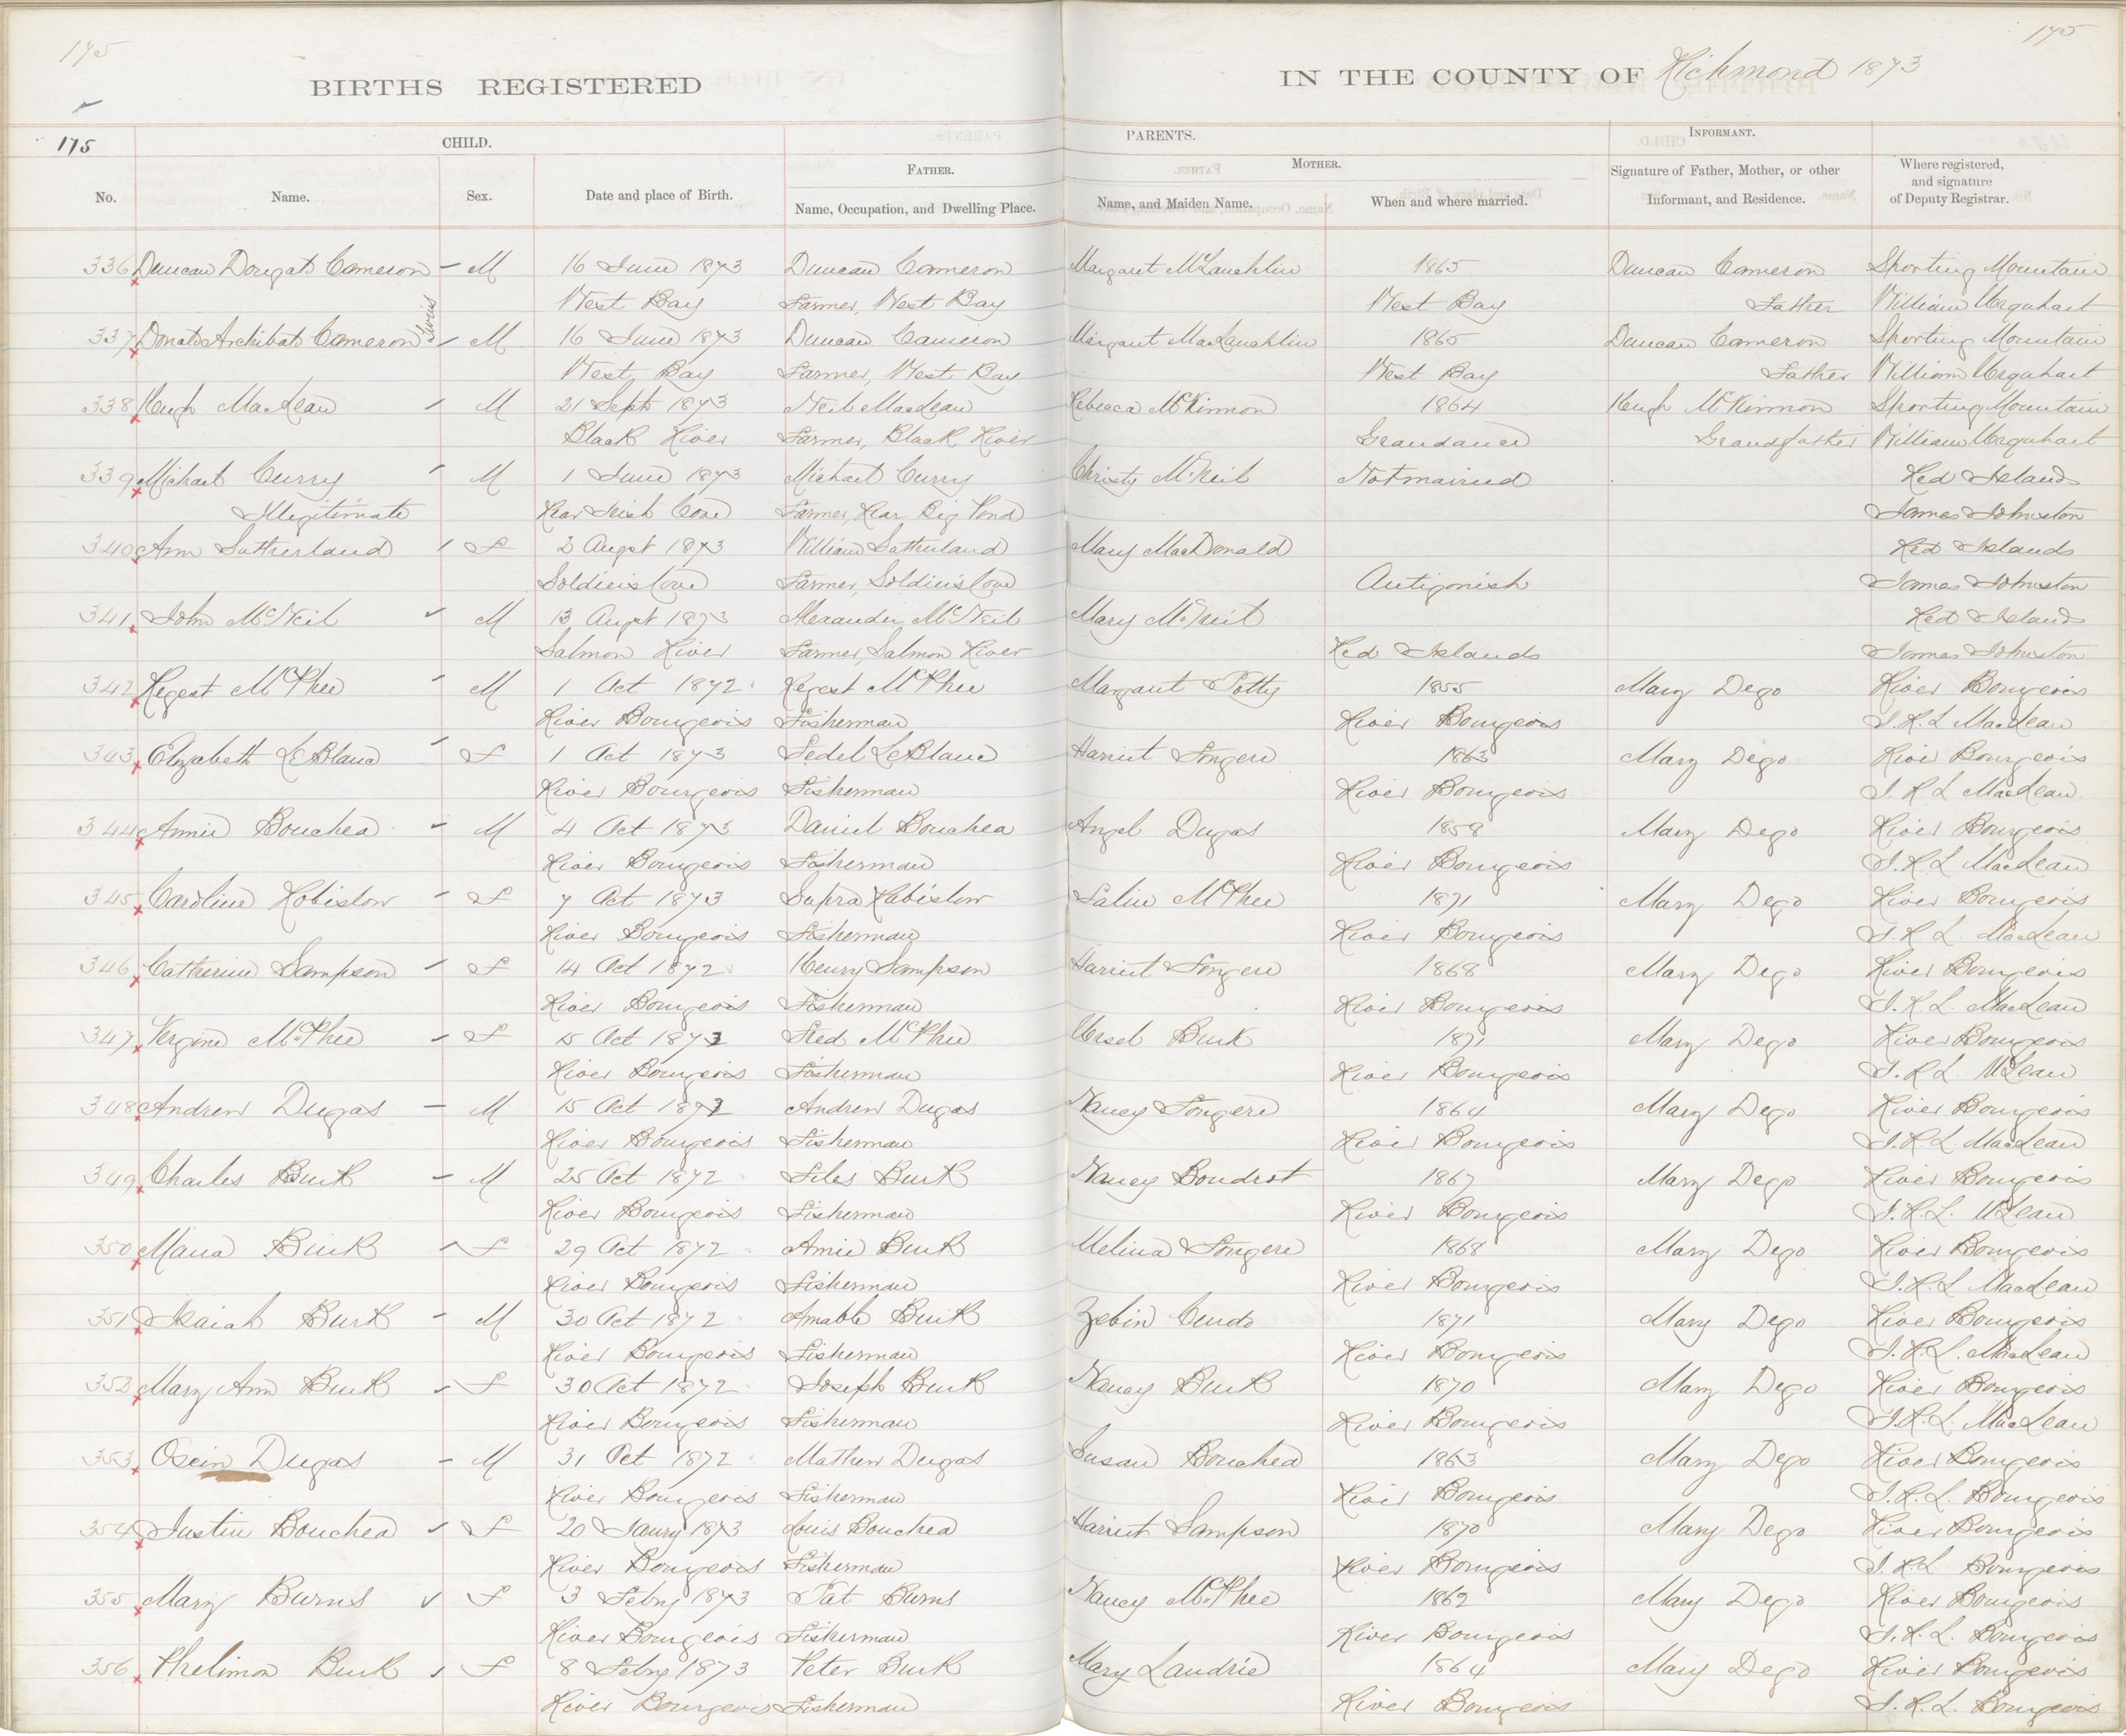 175
175
BIRTHS REGISTERED IN THE COUNTY OF Richmond 1873
175
CHILD. PARENTS. INFORMANT.
FATHER. MOTHER.
No. Name. Sex. Date and place of Birth. Name, Occupation, and Dwelling Place. Name, and Maiden Name. When and where married. Signature of Father, Mother, or other Informant, and Residence. Where registered, and signature of Deputy Registrar.
336 Duncan Dougald Cameron M 16 June 1873 Duncan Cameron Margaret McLauchlin 1865 Duncan Cameron Sporting Mountain
West Bay Farmer, West Bay West Bay Father William Urquhart
337 Donald Archibald Cameron twins M 16 June 1873 Duncan Cameron Margaret MacLauchlin 1865 Duncan Cameron Sporting Mountain
West Bay Farmer, West Bay West Bay Father William Urquhart
338 Hugh MacLean M 21 Sept 1873 Neil MacLean Rebecca McKinnon 1864 Hugh McKinnon Sporting Mountain
Black River Farmer, Black River Grandance Grandfather William Urquhart
339 Michael Curry M 1 June 1873 Michael Curry Christy McNeil Not mairied Red Islands
Illegitimate Rear Irish Cove Farmer, Rear Big Pond James Johnston
340 Ann Sutherland F 2 Augst 1873 William Sutherland Mary MacDonald Red Islands
Soldiers Cove Farmer, Soldiers Cove Antigonish James Johnston
341 John McNeil M 13 Augst 1873 Alexander McNeil Mary McNeil Red Islands
Salmon River Farmer, Salmon River Red Islands James Johnston
342 Regest McPhee M 1 Oct 1872 Regest McPhee Margaret Potty 1855 Mary Dego River Bourgeois
River Bourgeois Fisherman River Bourgeois J. R. L MacLean
343 Elizabeth LeBlanc F 1 Oct 1873 Fedel LeBlanc Harriet Songere 1863 Mary Dego River Bourgeois
River Bourgeois Fisherman River Bourgeois J. R. L MacLean
344 Amie Bouchea M 4 Oct 1873 Daniel Bouchea Angel Dugas 1858 Mary Dego River Bourgeois
River Bourgeois Fisherman River Bourgeois J. R. L MacLean
345 Caroline Robislow F 7 Oct 1873 Supra Robislow Salin McPhee 1871 Mary Dego River Bourgeois
River Bourgeois Fisherman River Bourgeois J. R. L. MacLean
346 Catherine Sampson F 14 Oct 1872 Henry Sampson Harriet Songere 1868 Mary Dego River Bourgeois
River Bourgeois Fisherman River Bourgeois J. R. L. MacLean
347 Vergine McPhee F 15 Oct 1872 Fred McPhee Ursel Burk 1871 Mary Dego River Bourgeois
River Bourgeois Fisherman River Bourgeois J. R L. McLean
348 Andrew Dugas M 15 Oct 1872 Andrew Dugas Nancy Songere 1864 Mary Dego River Bourgeois
River Bourgeois Fisherman River Bourgeois J. R. L MacLean
349 Charles Burk M 25 Oct 1872 Files Burk Nancy Boudrot 1867 Mary Dego River Bourgeois
River Bourgeois Fisherman River Bourgeois J. R. L. McLean
350 Maria Burk F 29 Oct 1872 Amie Burk Melina Songere 1868 Mary Dego River Bourgeois
River Bourgeois Fisherman River Bourgeois J. R. L MacLean
351 Isaiah Burk M 30 Oct 1872 Amable Burk Zebin 1871 Mary Dego River Bourgeois
River Bourgeois Fisherman River Bourgeois J. R. L. MacLean
352 Mary Ann Burk F 30 Oct 1872 Joseph Burk Nancy Burk 1870 Mary Dego River Bourgeois
River Bourgeois Fisherman River Bourgeois J. R. L. MacLean
353 Osein Dugas M 31 Oct 1872 Mathew Dugas Susan Bouchea 1863 Mary Dego River Bourgeois
River Bourgeois Fisherman River Bourgeois J. R. L. Bourgeois
354 Justin Bouchea F 20 Jaury 1873 Louis Bouchea Harriet Sampson 1870 Mary Dego River Bourgeois
River Bourgeois Fisherman River Bourgeois J. R. L Bourgeois
355 Mary Burns F 3 Febry 1873 Pat Burns Nancy McPhee 1869 Mary Dego River Bourgeois
River Bourgeois Fisherman River Bourgeois J. R. L. Bourgeois
356 Phelimon Burk F 8 Febry 1873 Peter Burk Mary Landrie 1864 Mary Dego River Bourgeois
River Bourgeois Fisherman River Bourgeois J. R. L. Bourgeois